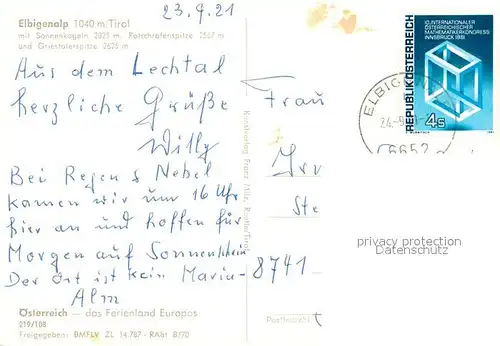 23.9.21
Elbigenalp 1040 m/Tirol
mit Sonnenkogeln 2825 m, Rotschrofenspitze 2567 m
und Griestalerspitze 2625 m
Aus dem Lechtal
herzliche Grüße
Willy
Bei Regen & Nebel
kamen wir um 16 Uhr
hier an und hoffen für
Morgen auf Sonnenschein
Der Ort ist kein Maria-
Alm
Österreich — das Ferienland Europas
219/108
Freigegeben: BMFLV ZL 14.787 - RAbt B/70
Kunstverlag Franz Milz, Reutte/Tirol
10. INTERNATIONALER
ÖSTERREICHISCHER
MATHEMATIKERKONGRESS
INNSBRUCK 1981
REPUBLIK ÖSTERREICH
4 S
ELBIGEN
24.-9.
6652
Frau
Irr
Ste
8741
privacy protection
Datenschutz